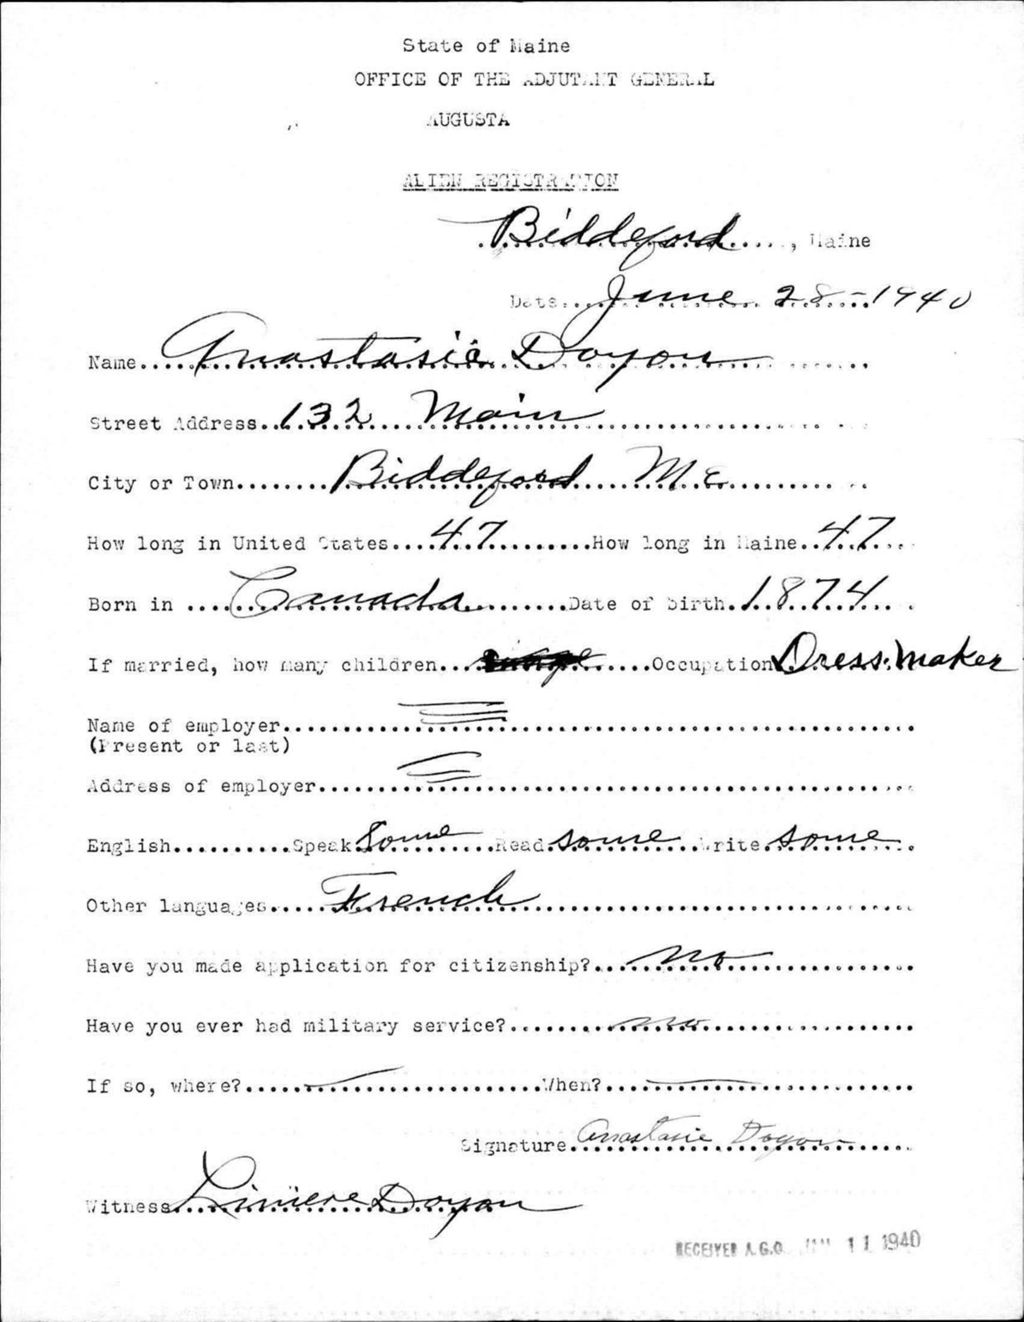 State of Maine
OFFICE OF THE ADJUTANT GENERAL
AUGUSTA
ALIEN REGISTRATION
Biddeford, Maine
Date June 28-1940
Name Anastasie Doyon
Street Address 132 Main
City or Town Biddeford Me
How long in United States 47 How long in Maine 47
Born in Canada Date of birth 1874
If married, how many children Occupation Dress maker
Name of employer
(Present or last)
Address of employer
English Speak Some Read some Write some
Other languages French
Have you made application for citizenship? no
Have you ever had military service? no
If so, where? When?
Signature Anastasie Doyon
Witness Liniere Doyon
RECEIVED A.G.O. 11 1940